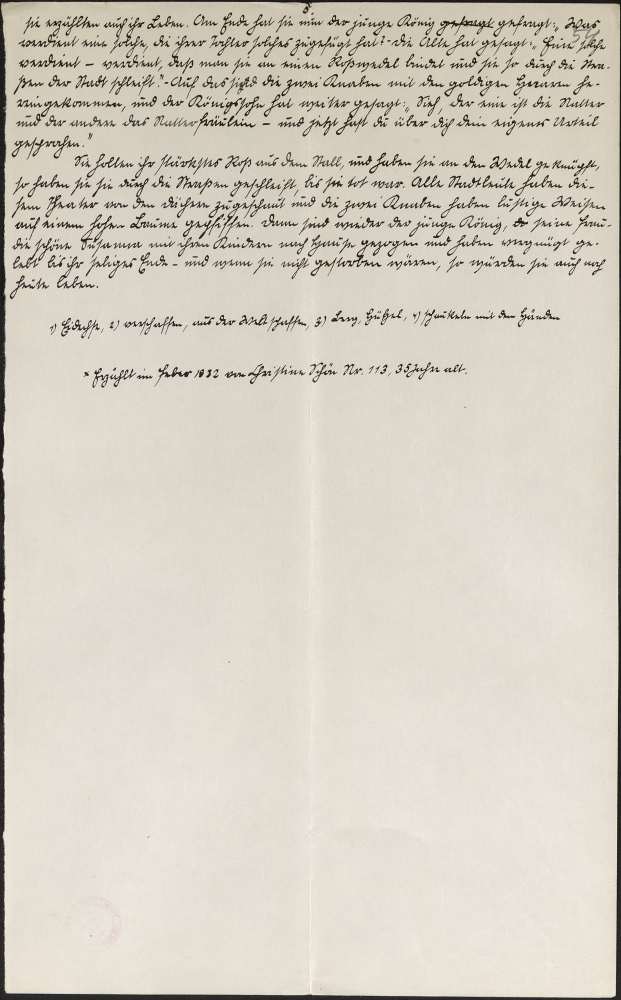 5.
sie erzählten auch ihr Leben. Am Ende hat sie nun der junge König gesagt gefragt: „Was
verdient eine solche, die ihrer Tochter solches zugefügt hat?" - die Alte hat gesagt: „Eine solche
verdient – verdient, daß man sie an einen Roßwedel bindet und sie so durch die Stra-
ßen der Stadt schleift." - Auf das sind die zwei Knaben mit den goldigen Haaren he-
reingekommen, und der Königssohn hat weiter gesagt: „Sieh, der eine ist die Natter
und der andere das Natterfräulein – und jetzt hast du über dich dein eigenes Urteil
gesprochen."
Sie holten ihr stärkstes Roß aus dem Stall, und haben sie an den Wedel geknüpft,
so haben sie sie durch die Straßen geschleift, bis sie tot war. Alle Stadtleute haben die-
sem Theater von den Dächern zugeschaut und die zwei Knaben haben lustige Weisen
auf einem hohen Baume gepfiffen. Dann sind wieder der junge König, seine Frau-
die schöne Susanna mit ihren Kindern nach Hause gezogen und haben vergnügt ge-
lebt bis ihr seliges Ende – und wenn sie nicht gestorben wären, so würden sie auch noch
heute leben.
1) Eidechse, 2) verschaffen, aus der Welt schaffen, 3) Berg, Hügel, 4) schaukeln mit den Händen
* Erzählt im Feber 1932 von Christine Schön Nr. 113, 35 Jahre alt.